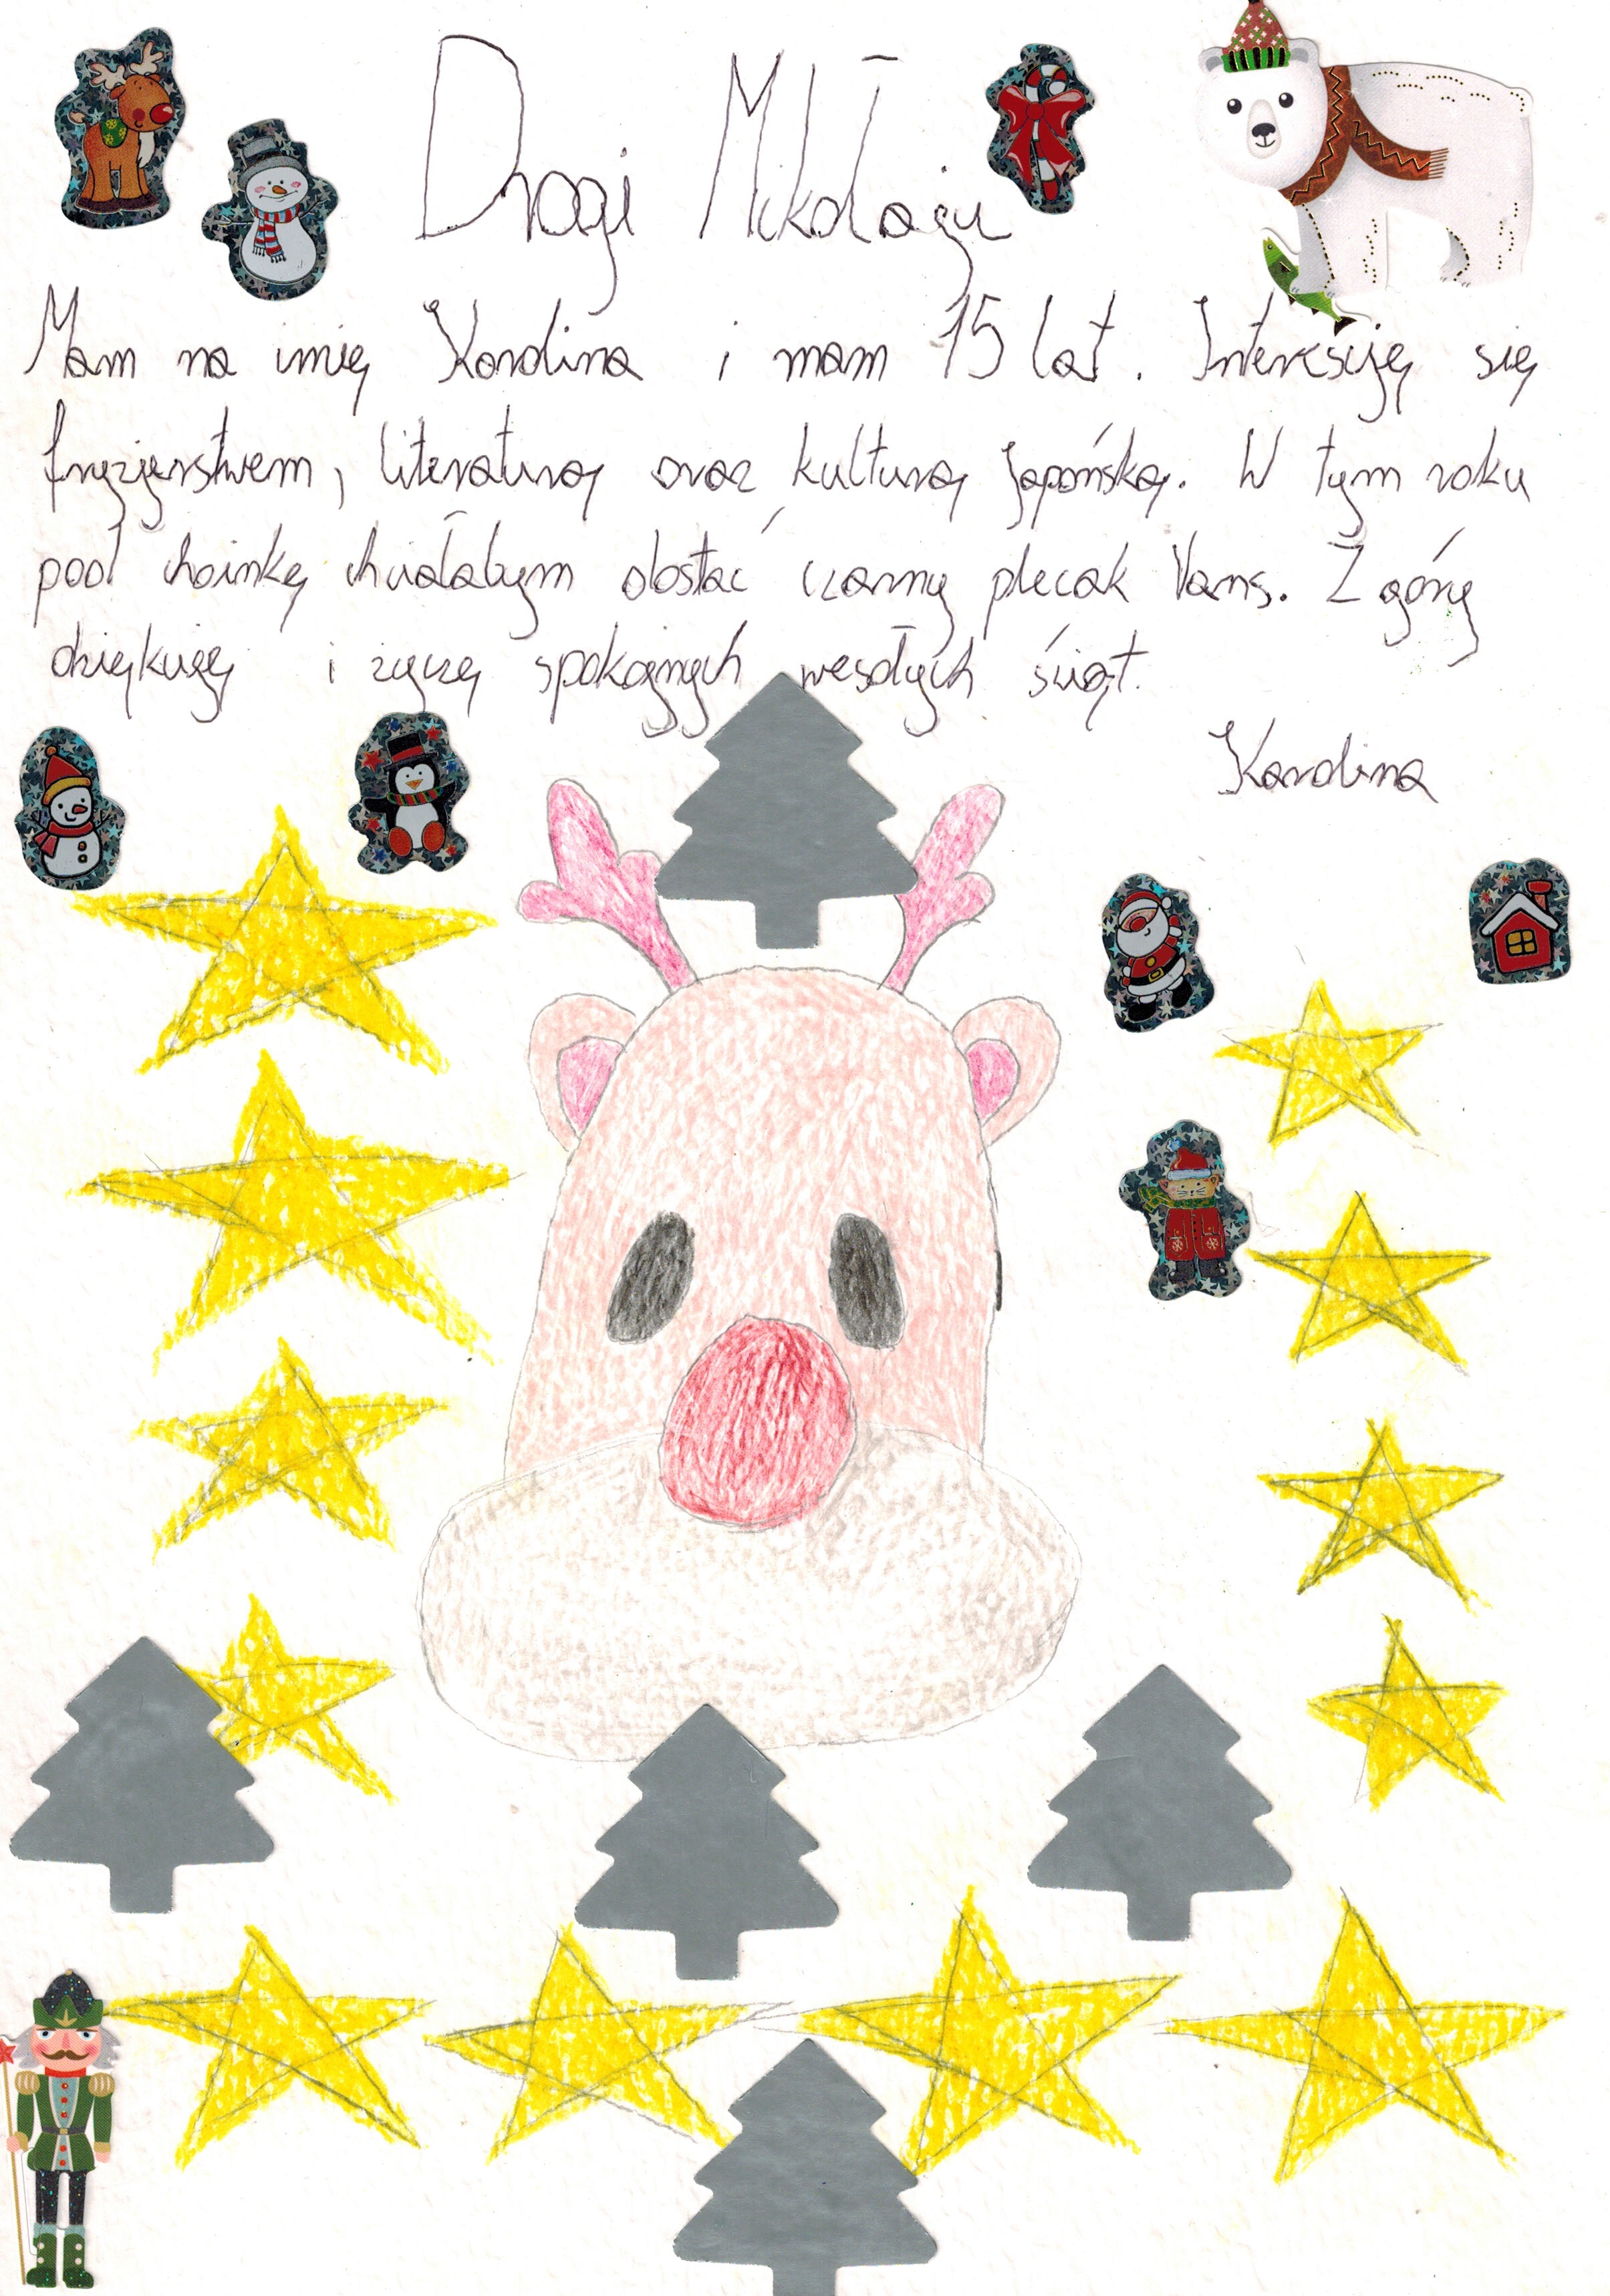 Drogi Mikołaju
Mam na imię Karolina i mam 15 lat. Interesuję się
fryzjerstwem, literaturą oraz kulturą japońską. W tym roku
pod choinkę chciałabym dostać czarny plecak Vans. Z góry
dziękuję i życzę spokojnych wesołych świąt.
Karolina